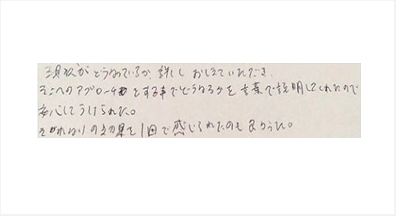 現状がどうなっているか詳しくおしえていただき、
そこへのアプローチをする事でどうなるかを言葉で説明してくれたので
安心してうけられた。
それなりの効果を1回で感じられたのもよかった。